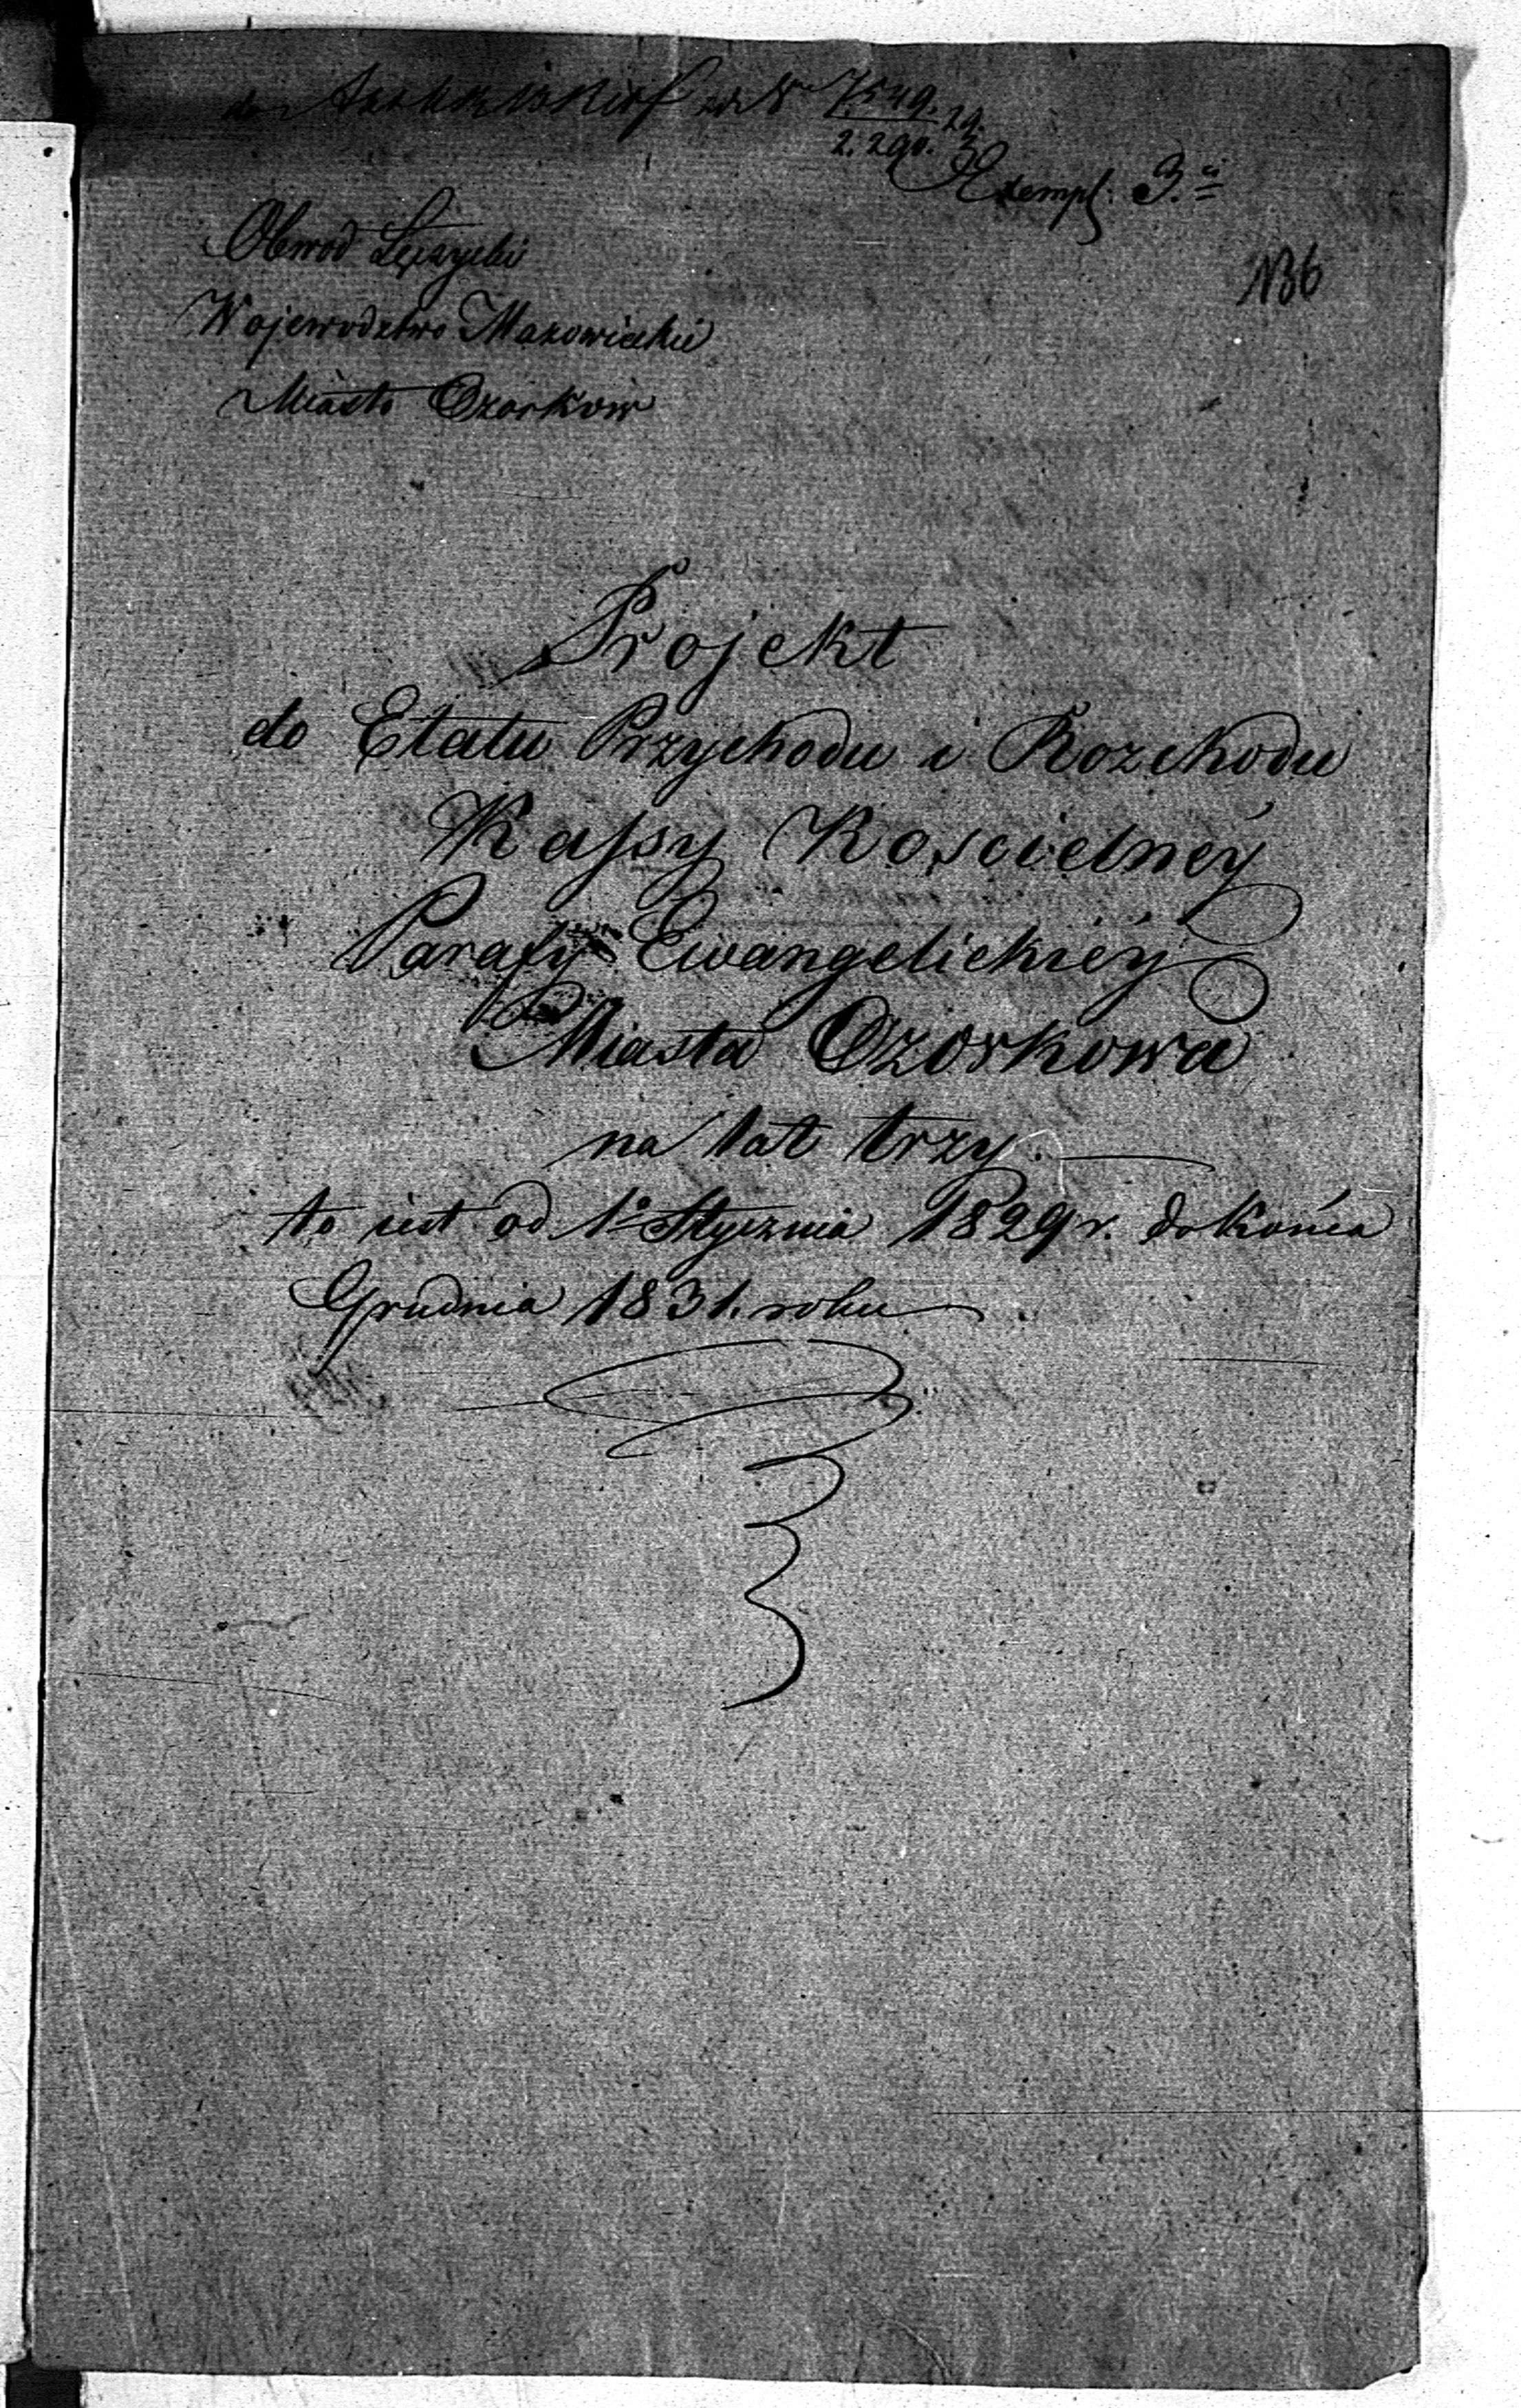 7549.
2.290. 29.
Exempl. 3.ci
Obwod Łęczycki
N36
Województwo Mazowieckie
Miasto Ozorków
Projekt
do Etatu Przychodu i Rozchodu
Kassy Koscielney
Parafy Ewangelickiéy
Miasta Ozorkowa
na lat trzy.
to iest od 1o Stycznia 1829 r. do Końca
Grudnia 1831. roku